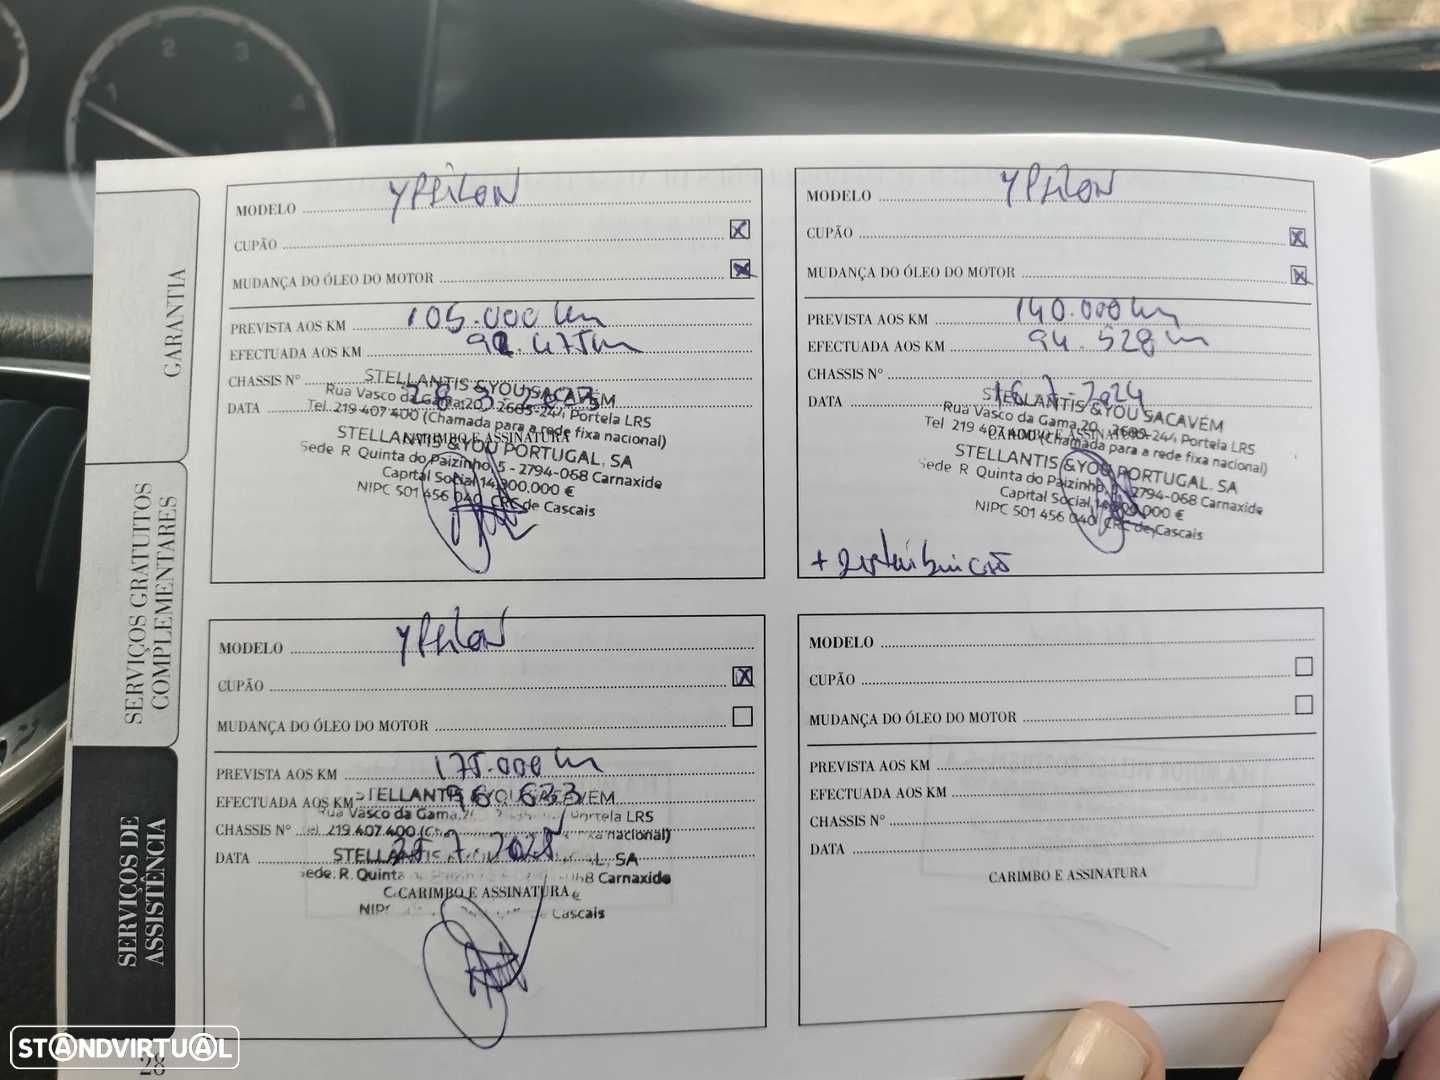 2
3
1
4
GARANTIA
SERVIÇOS GRATUITOS
COMPLEMENTARES
SERVIÇOS DE
ASSISTÊNCIA
MODELO YPSILON
CUPÃO X
MUDANÇA DO ÓLEO DO MOTOR X
PREVISTA AOS KM 105.000 km
EFECTUADA AOS KM
CHASSIS Nº
DATA 28.3.2023
STELLANTIS &YOU SACAVÉM
Rua Vasco da Gama,20, 2685-244 Portela LRS
Tel. 219 407 400 (Chamada para a rede fixa nacional)
CARIMBO E ASSINATURA
STELLANTIS &YOU PORTUGAL, SA
Sede R Quinta do Paizinho, 5 - 2794-068 Carnaxide
Capital Social 14.300.000 €
NIPC 501 456 040 CRC de Cascais
MODELO YPSILON
CUPÃO X
MUDANÇA DO ÓLEO DO MOTOR X
PREVISTA AOS KM 140.000 km
EFECTUADA AOS KM 94.528 km
CHASSIS Nº
DATA 16.7.2024
STELLANTIS &YOU SACAVÉM
Rua Vasco da Gama,20, 2685-244 Portela LRS
Tel. 219 407 400 (Chamada para a rede fixa nacional)
CARIMBO E ASSINATURA
STELLANTIS &YOU PORTUGAL, SA
Sede R Quinta do Paizinho, 5 - 2794-068 Carnaxide
Capital Social 14.300.000 €
NIPC 501 456 040 CRC de Cascais
+ Distribuição
MODELO YPSILON
CUPÃO X
MUDANÇA DO ÓLEO DO MOTOR
PREVISTA AOS KM 175.000 km
EFECTUADA AOS KM 96 633
STELLANTIS &YOU SACAVÉM
Rua Vasco da Gama, Portela LRS
CHASSIS Nº
Tel. 219 407 400 fixa nacional)
DATA 25.7.2025
STELLANTIS SA
Sede R. Quinta Carnaxide
CARIMBO E ASSINATURA
NIPC de Cascais
MODELO
CUPÃO
MUDANÇA DO ÓLEO DO MOTOR
PREVISTA AOS KM
EFECTUADA AOS KM
CHASSIS Nº
DATA
CARIMBO E ASSINATURA
28
STANDVIRTUAL